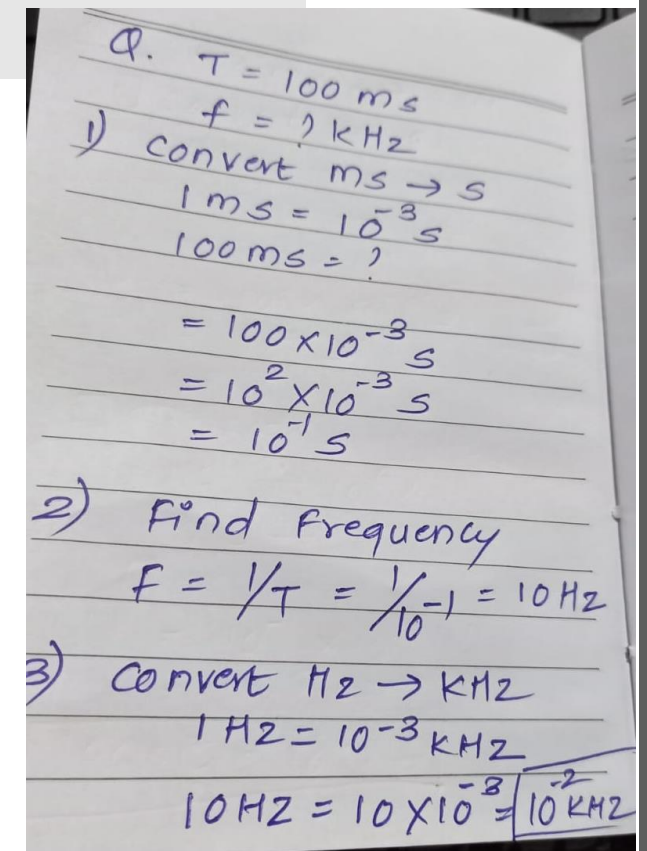 Q. T = 100 ms
f = ? KHz
1) convert ms → s
1 ms = 10⁻³ s
100 ms = ?
= 100 × 10⁻³ s
= 10² × 10⁻³ s
= 10⁻¹ s
2) Find Frequency
F = 1/T = 1/10⁻¹ = 10 Hz
3) convert Hz → KHZ
1 HZ = 10⁻³ KHZ
10 HZ = 10 × 10⁻³ = 10⁻² KHZ